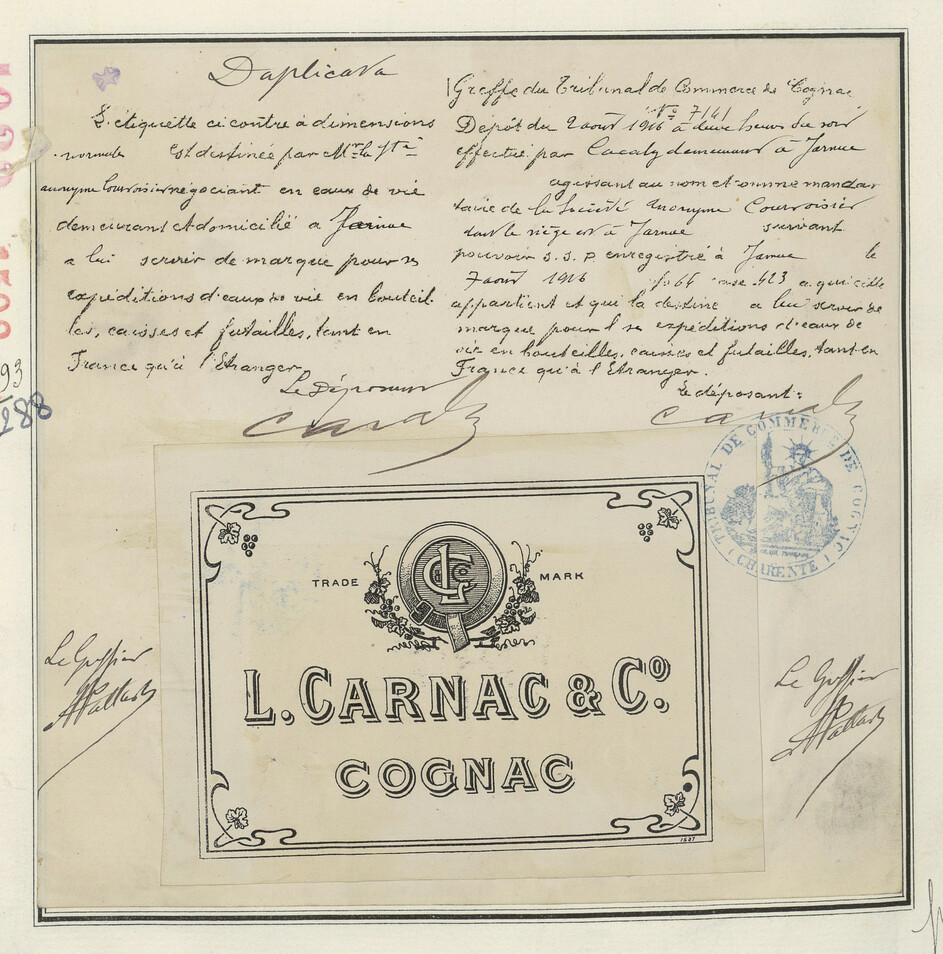 Duplicata
L'étiquette ci contre à dimensions
normale Est destinée par Mr la Sté
anonyme Courvoisier négociant en eaux de vie
demeurant et domicilié à Jarnac
a lui servir de marque pour ses
expéditions d'eaux de vie en bouteil
les, caisses et futailles, tant en
France qu'à l'Etranger
Le Déposant
Greffe du Tribunal de Commerce de Cognac
No 7141
Dépôt du 2 août 1916 à deux heures du soir
effectué par Cazaly demeurant à Jarnac
agissant au nom et comme manda
taire de la Société Anonyme Courvoisier
dont le siège est à Jarnac suivant
pouvoir S.S.P. enregistré à Jarnac le
7 août 1916 fo 64 case 423 a qui elle
appartient et qui la destine a lui servir de
marque pour les expéditions d'eaux de
vie en bouteilles, caisses et futailles, tant en
France qu'à l'Etranger.
Le déposant:
TRIBUNAL DE COMMERCE DE COGNAC
(CHARENTE)
TRADE MARK
L. CARNAC & Co.
COGNAC
Le Greffier
Le Greffier
93
288